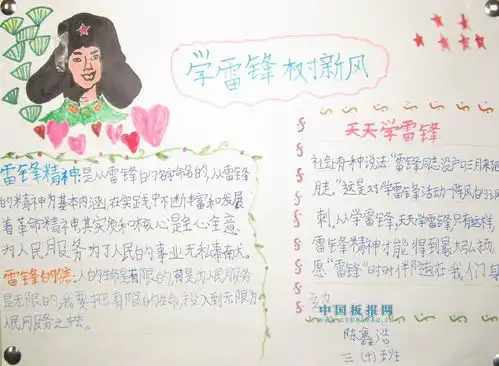 学雷锋 树新风
雷锋精神:是从雷锋的名字命名的,从雷锋
的精神为基本内涵,在实践中不断丰富和发展
着革命精神,其实质和核心是全心全意
为人民服务,为了人民的事业无私奉献。
雷锋的信:人的生命是有限的,可是,为人民服务
是无限的,我要把有限的生命,投入到无限为
人民服务之中去。
天天学雷锋
社会有种说法:"雷锋同志没户口三月来四
月走。"这是对学雷锋活动一阵风的
刺。从学雷锋,天天学雷锋,只有这样,
雷锋精神才能得到最大弘扬,
愿"雷锋"时时伴随在我们身
边
中国板报网
陈鑫浩
三(十)班